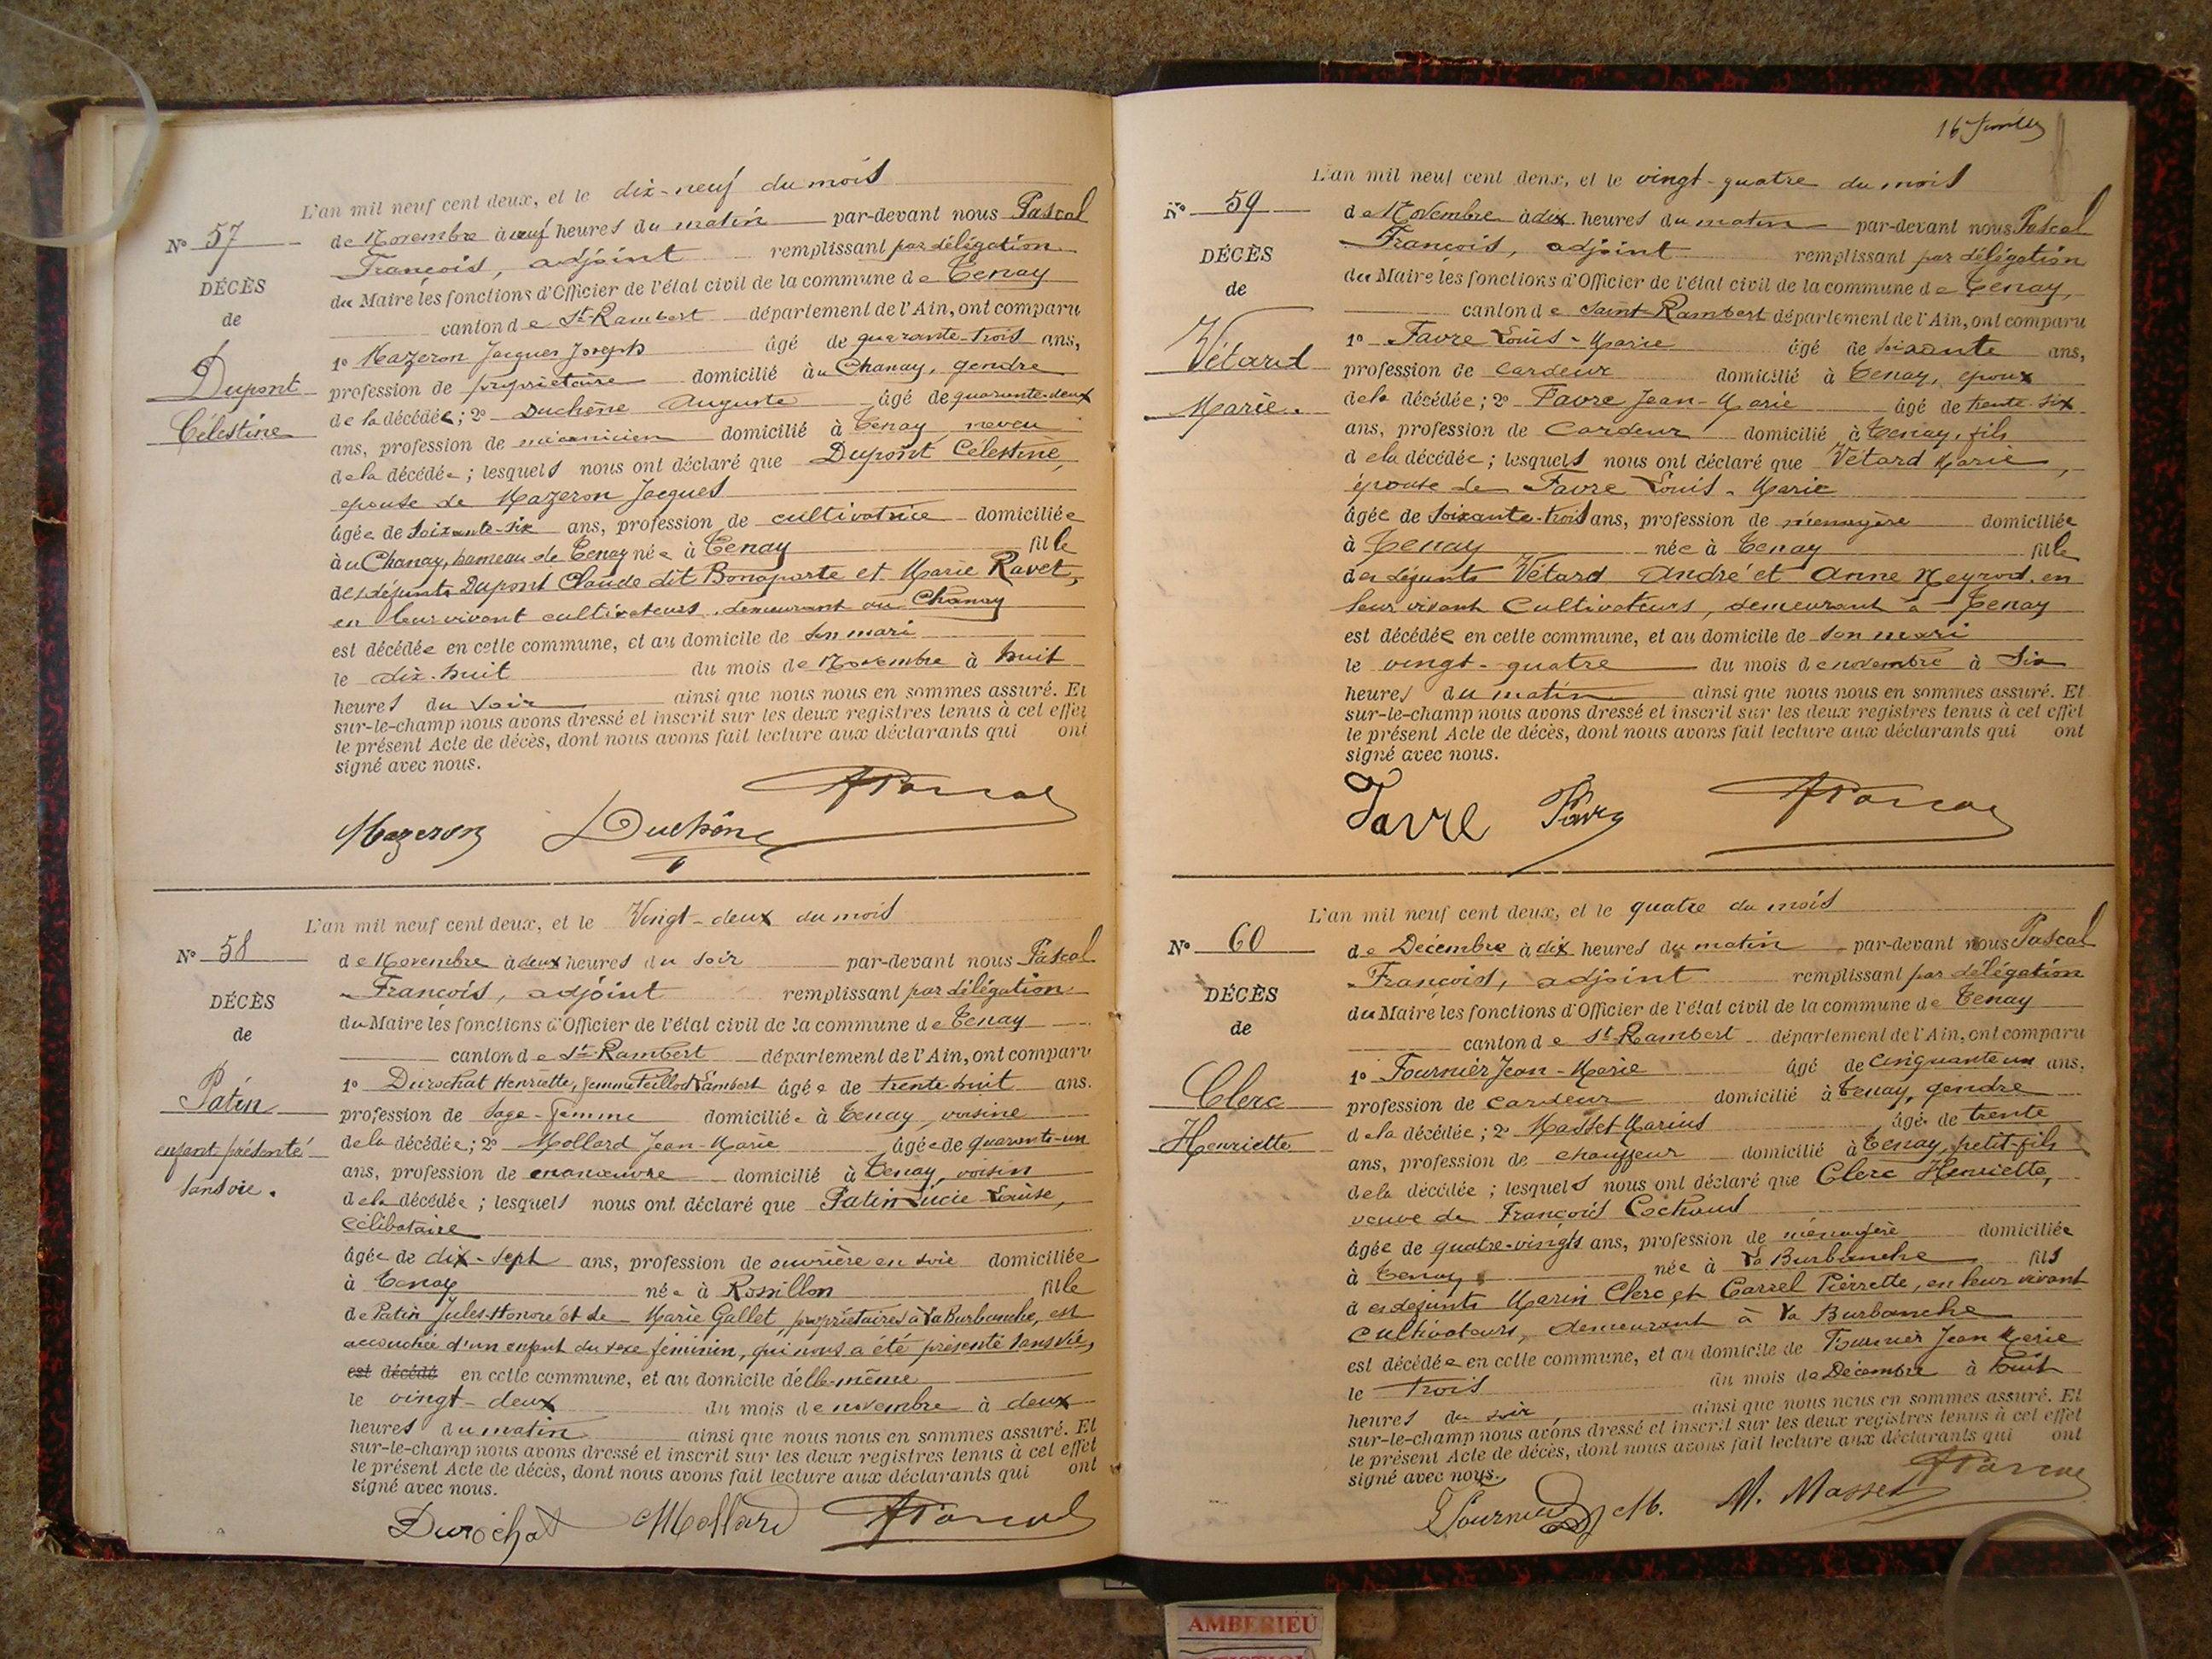 L'an mil neuf cent deux, et le dix-neuf du mois
N° 57
de Novembre à neuf heures du matin par-devant nous Pascal
François, adjoint remplissant par délégation
DÉCÈS
du Maire les fonctions d'Officier de l'état civil de la commune de Tenay
de
canton de St-Rambert département de l'Ain, ont comparu
1° Mazeron Jacques Joseph âgé de quarante-trois ans,
Dupont
profession de propriétaire domicilié à u Chanay, gendre
Célestine
de la décédée; 2° Duchêne Auguste âgé de quarante-deux
ans, profession de mécanicien domicilié à Tenay, neveu
de la décédée; lesquels nous ont déclaré que Dupont Célestine,
épouse de Mazeron Jacques
âgée de soixante-six ans, profession de cultivatrice domiciliée
à u Chanay, hameau de Tenay née à Tenay fille
des défunts Dupont Claude dit Bonaparte et Marie Ravet,
en leur vivant cultivateurs, demeurant au Chanay
est décédée en cette commune, et au domicile de son mari
le dix-huit du mois de Novembre à huit
heures du soir ainsi que nous nous en sommes assuré. Et
sur-le-champ nous avons dressé et inscrit sur les deux registres tenus à cet effet
le présent Acte de décès, dont nous avons fait lecture aux déclarants qui ont
signé avec nous.
Mazeron Duchêne FPascal
L'an mil neuf cent deux, et le Vingt-deux du mois
N° 58
de Novembre à deux heures du soir par-devant nous Pascal
François, adjoint remplissant par délégation
DÉCÈS
du Maire les fonctions d'Officier de l'état civil de la commune de Tenay
de
canton de St-Rambert département de l'Ain, ont comparu
1° Durochat Henriette, femme Lambert âgée de trente-huit ans.
Patin
profession de sage-femme domiciliée à Tenay, voisine
enfant présenté
de la décédée; 2° Mollard Jean-Marie âgée de quarante-un
ans, profession de manœuvre domicilié à Tenay, voisin
sans vie.
de la décédée; lesquels nous ont déclaré que Patin Lucie Louise,
célibataire
âgée de dix-sept ans, profession de ouvrière en soie domiciliée
à Tenay née à Rossillon fille
de Patin Jules-Honoré et de Marie Gallet, propriétaires à La Burbanche, est
accouchée d'un enfant du sexe féminin, qui nous a été présenté sans vie,
est décédé en cette commune, et au domicile d'elle-même
le vingt-deux du mois de novembre à deux
heures du matin ainsi que nous nous en sommes assuré. Et
sur-le-champ nous avons dressé et inscrit sur les deux registres tenus à cet effet
le présent Acte de décès, dont nous avons fait lecture aux déclarants qui ont
signé avec nous.
Durochat Mollard FPascal
L'an mil neuf cent deux, et le vingt-quatre du mois
N° 59
de Novembre à dix heures du matin par-devant nous Pascal
DÉCÈS
François, adjoint remplissant par délégation
de
du Maire les fonctions d'Officier de l'état civil de la commune de Tenay,
canton de Saint-Rambert département de l'Ain, ont comparu
Vétard
1° Favre Louis-Marie âgé de soixante ans,
profession de cardeur domicilié à Tenay, époux
Marie.
de la décédée; 2° Favre Jean-Marie âgé de trente-six
ans, profession de cardeur domicilié à Tenay, fils
de la décédée; lesquels nous ont déclaré que Vétard Marie,
épouse de Favre Louis-Marie
âgée de soixante-trois ans, profession de ménagère domiciliée
à Tenay née à Tenay fille
des défunts Vétard André et Anne Neyrod, en
leur vivant cultivateurs, demeurant à Tenay
est décédée en cette commune, et au domicile de son mari
le vingt-quatre du mois de novembre à six
heures du matin ainsi que nous nous en sommes assuré. Et
sur-le-champ nous avons dressé et inscrit sur les deux registres tenus à cet effet
le présent Acte de décès, dont nous avons fait lecture aux déclarants qui ont
signé avec nous.
Favre FPascal
L'an mil neuf cent deux, et le quatre du mois
N° 60
de Décembre à dix heures du matin par-devant nous Pascal
François, adjoint remplissant par délégation
DÉCÈS
du Maire les fonctions d'Officier de l'état civil de la commune de Tenay
de
canton de St-Rambert département de l'Ain, ont comparu
1° Fournier Jean-Marie âgé de cinquante un ans.
Clerc
profession de cardeur domicilié à Tenay, gendre
Henriette
de la décédée; 2° Masset Marius âgé de trente
ans, profession de chauffeur domicilié à Tenay, petit-fils
de la décédée; lesquels nous ont déclaré que Clerc Henriette,
veuve de François Cochaud
âgée de quatre-vingts ans, profession de ménagère domiciliée
à Tenay née à La Burbanche fils
des défunts Marin Clerc et Carrel Pierrette, en leur vivant
cultivateurs, demeurant à La Burbanche
est décédée en cette commune, et au domicile de Fournier Jean Marie
le trois du mois de Décembre à huit
heures du soir, ainsi que nous nous en sommes assuré. Et
sur-le-champ nous avons dressé et inscrit sur les deux registres tenus à cet effet
le présent Acte de décès, dont nous avons fait lecture aux déclarants qui ont
signé avec nous.
Fournier JM. M. Masset FPascal
AMBERIEU